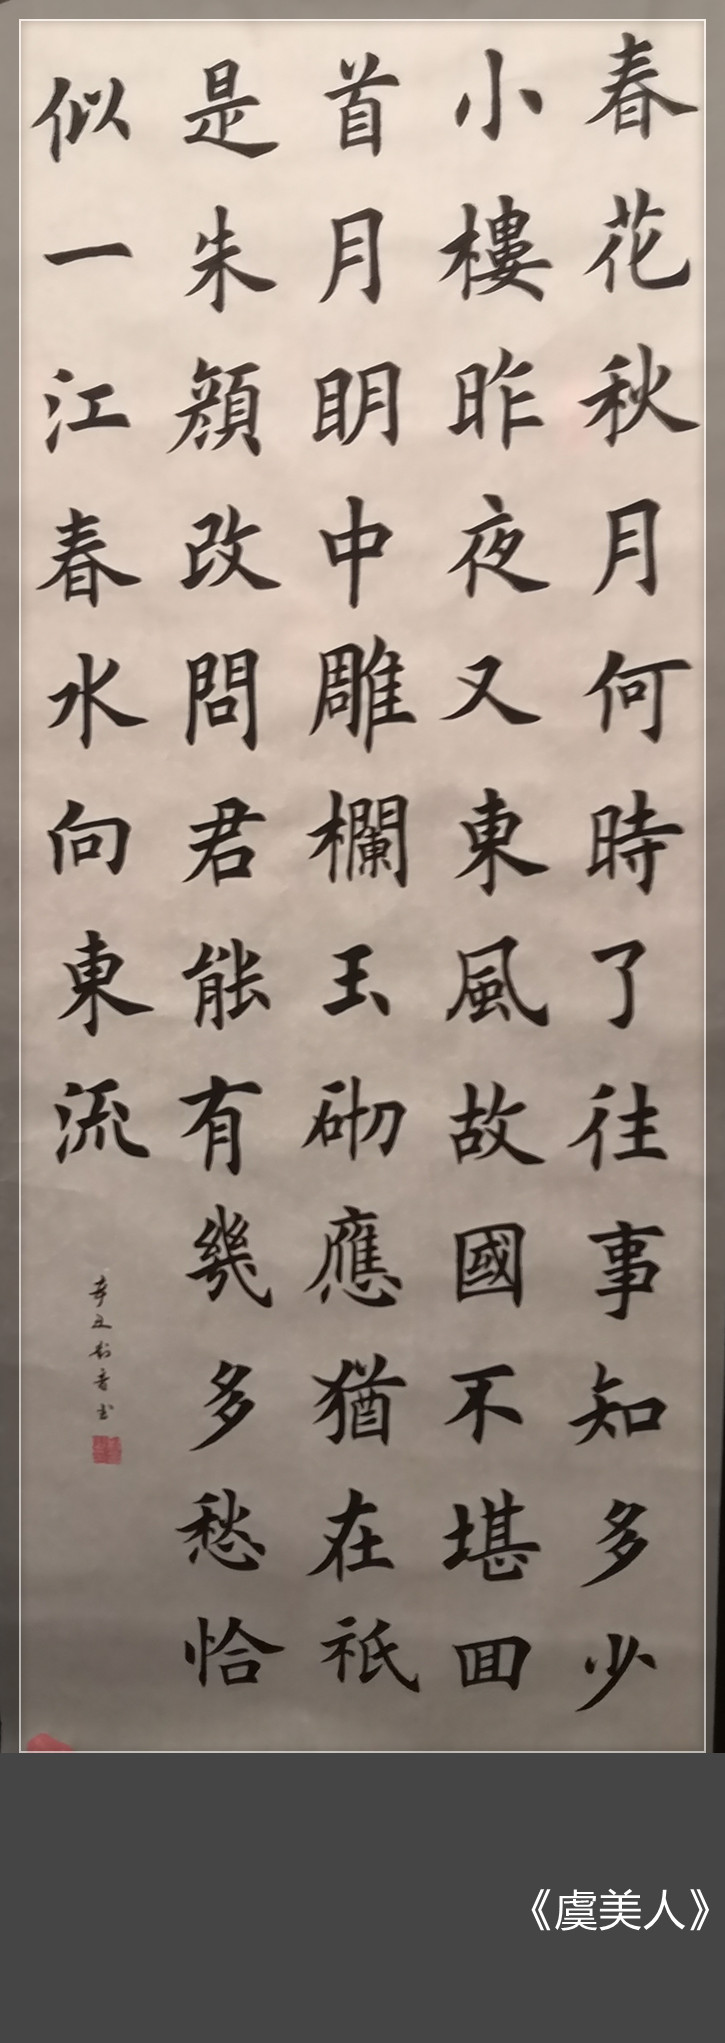 春花秋月何時了往事知多少
小樓昨夜又東風故國不堪回
首月明中雕欄玉砌應猶在祇
是朱顏改問君能有幾多愁恰
似一江春水向東流
《虞美人》